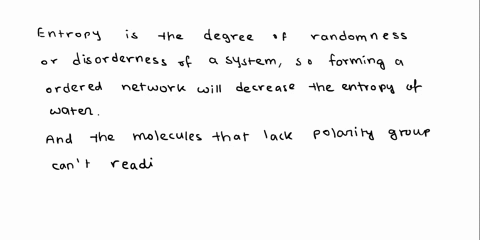 Entropy is the degree of randomness
or disorderness of a system, so forming a
ordered network will decrease the entropy of
water.
And the molecules that lack polarity group
can't readi